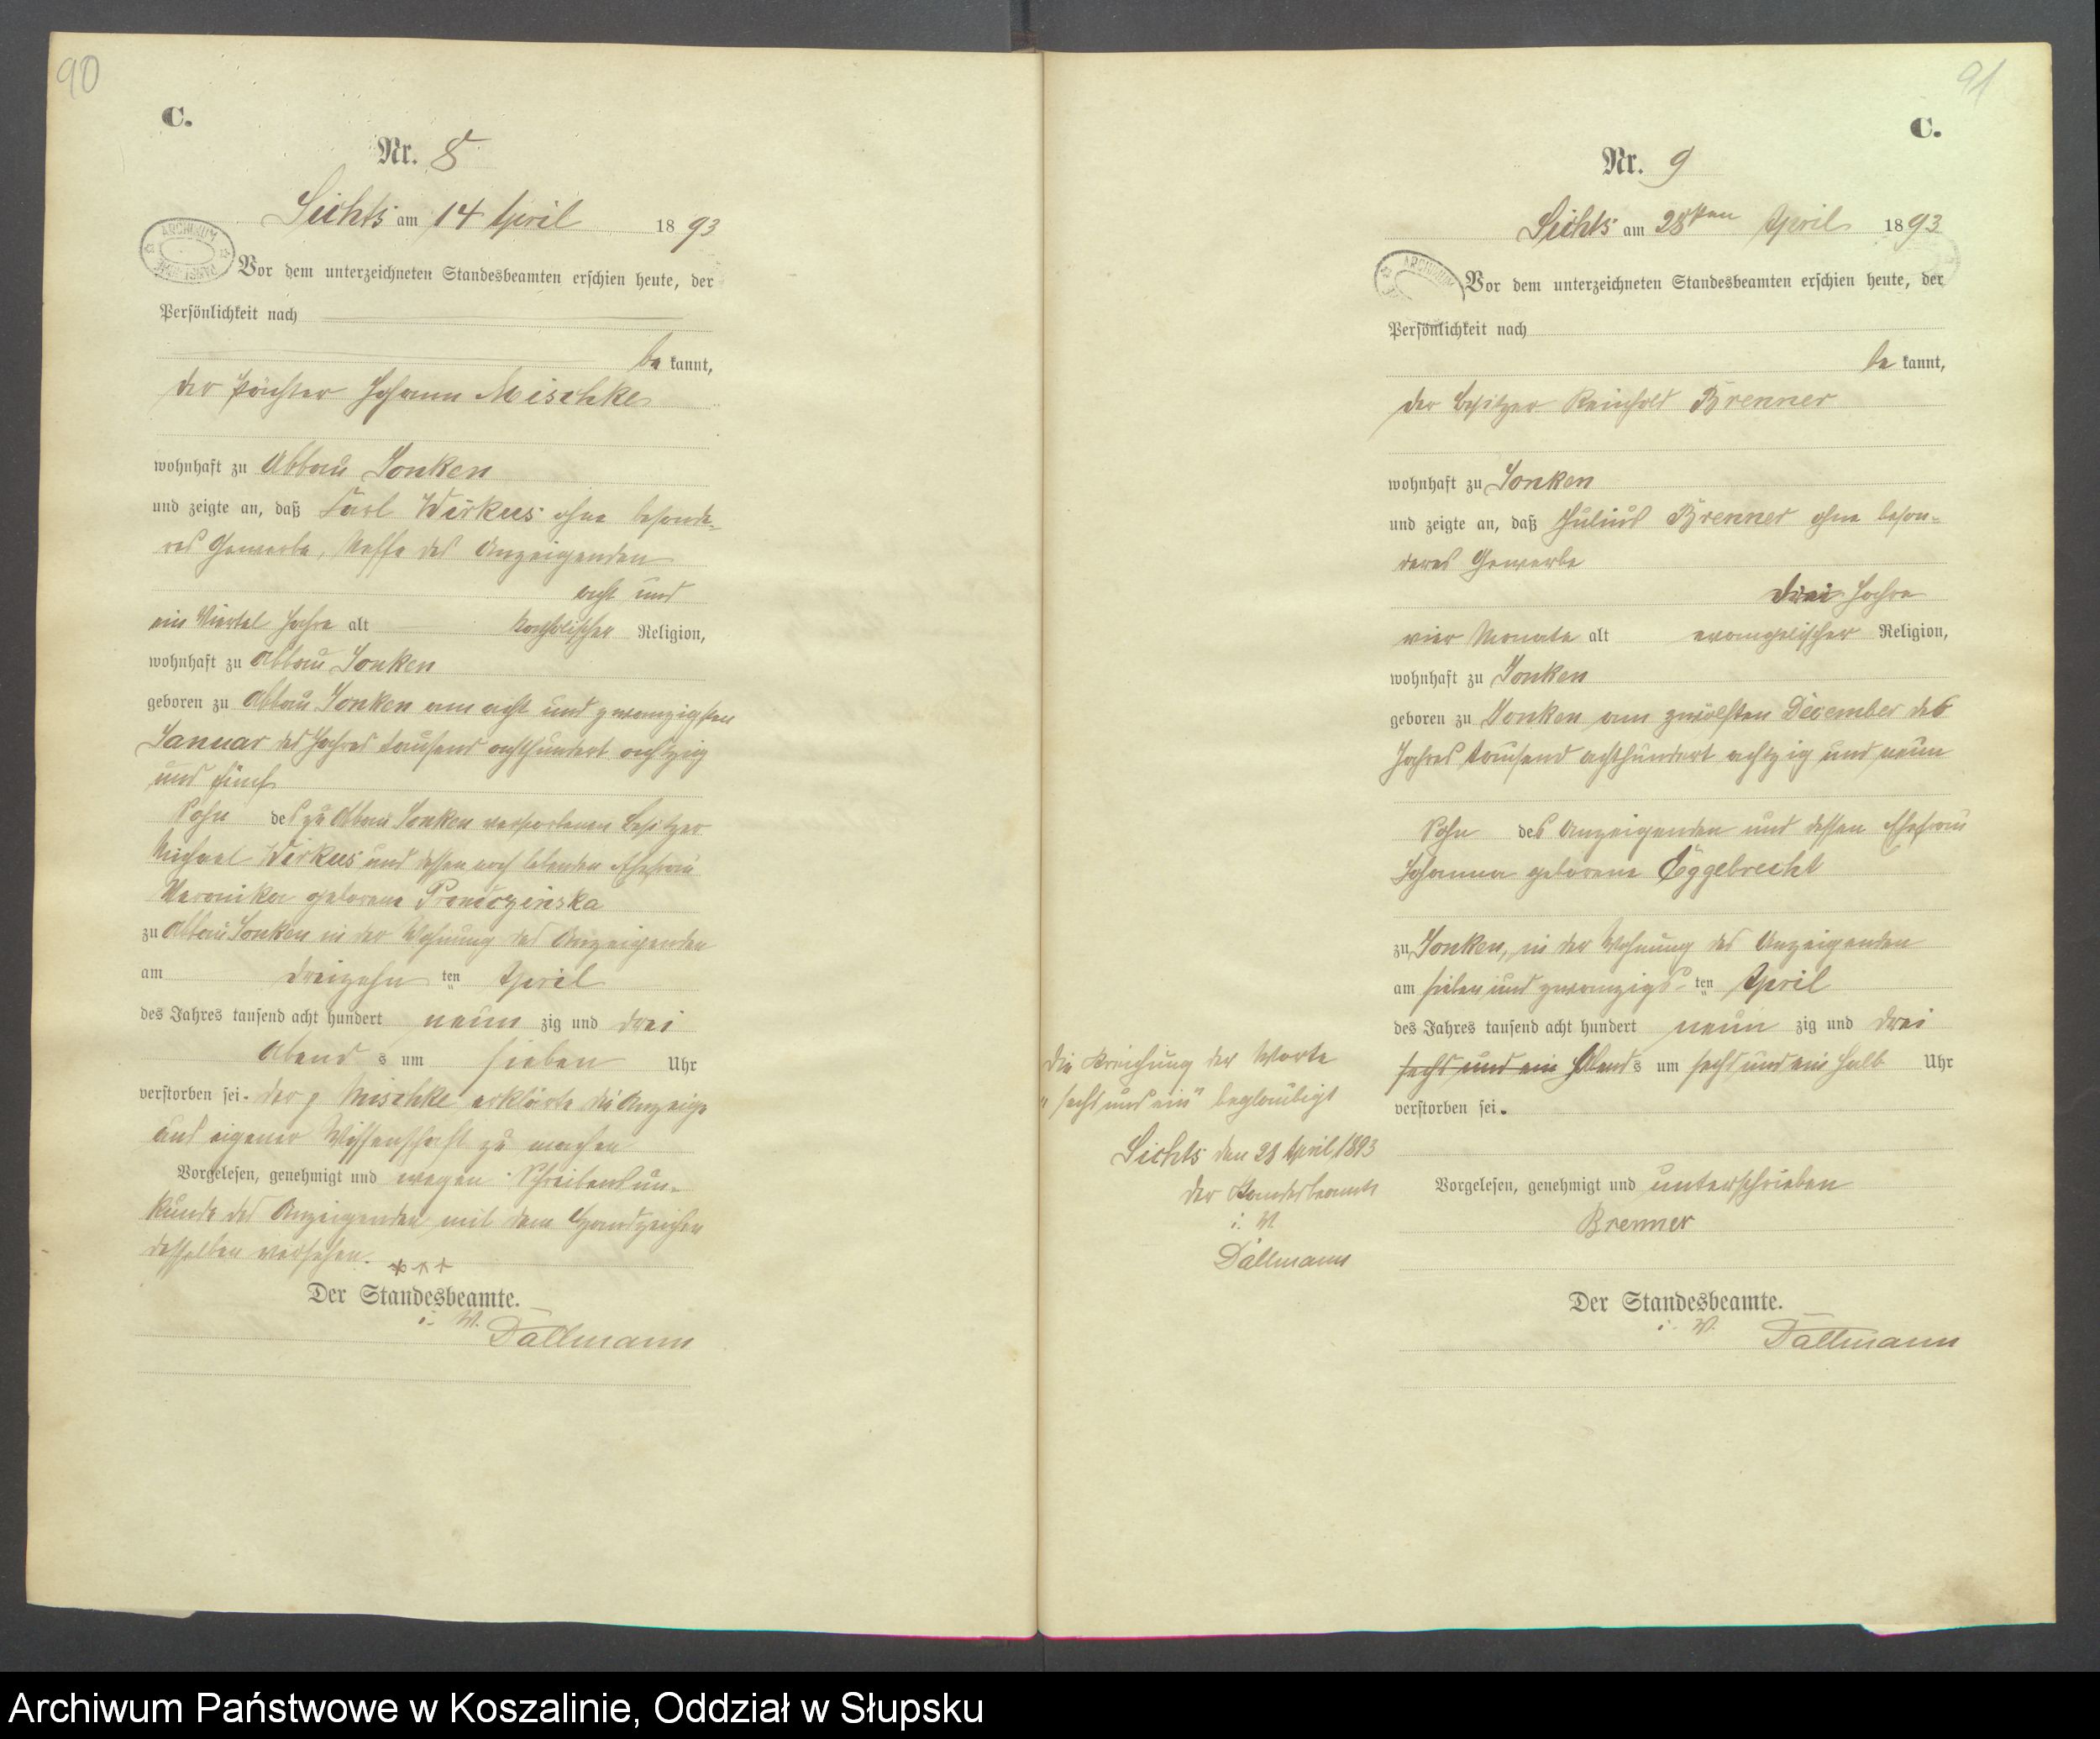 90
C.
Nr. 8
Sichts am 14 April 1893
ARCHIWUM
Vor dem unterzeichneten Standesbeamten erschien heute, der
Persönlichkeit nach
be kannt,
der Pächter Johann Mischke
wohnhaft zu Abbau Sonken
und zeigte an, daß Carl Wirkus ohne besonde-
res Gewerbe, Neffe des Anzeigenden
acht und
ein Viertel Jahre alt katholischer Religion,
wohnhaft zu Abbau Sonken
geboren zu Abbau Sonken am acht und zwanzigsten
Januar des Jahres tausend achthundert achtzig
und fünf
Sohn des zu Abbau Sonken verstorbenen Besitzer
Michael Wirkus und dessen noch lebenden Ehefrau
Veronika geborene
zu Abbau Sonken in der Wohnung des Anzeigenden
am dreizehn ten April
des Jahres tausend acht hundert neun zig und drei
Abend s um sieben Uhr
verstorben sei. der p Mischke erklärte die Anzeige
aus eigener Wissenschaft zu machen
Vorgelesen, genehmigt und wegen Schreibensun-
kunde des Anzeigenden mit dem Handzeichen
desselben versehen. +++
Der Standesbeamte.
i. V. Dallmann
91
C.
Nr. 9
Sichts am 28sten April 1893
ARCHIWUM
Vor dem unterzeichneten Standesbeamten erschien heute, der
Persönlichkeit nach
be kannt,
der Besitzer Reinhold Brenner
wohnhaft zu Sonken
und zeigte an, daß Julius Brenner ohne beson-
deres Gewerbe
drei Jahre
vier Monate alt evangelischer Religion,
wohnhaft zu Sonken
geboren zu Sonken am zwölften December des
Jahres tausend achthundert achtzig und neun
Sohn des Anzeigenden und dessen Ehefrau
Johanna geborene Eggebrecht
zu Sonken, in der Wohnung des Anzeigenden
am sieben und zwanzigs ten April
des Jahres tausend acht hundert neun zig und drei
sechs und ein Abend s um sechs und ein halb Uhr
verstorben sei.
Vorgelesen, genehmigt und unterschrieben
Brenner
Der Standesbeamte.
i. V. Dallmann
Die Streichung der Worte
"sechs und ein" beglaubigt
Sichts den 28 April 1893
Der Standesbeamte
i. V.
Dallmann
Archiwum Państwowe w Koszalinie, Oddział w Słupsku